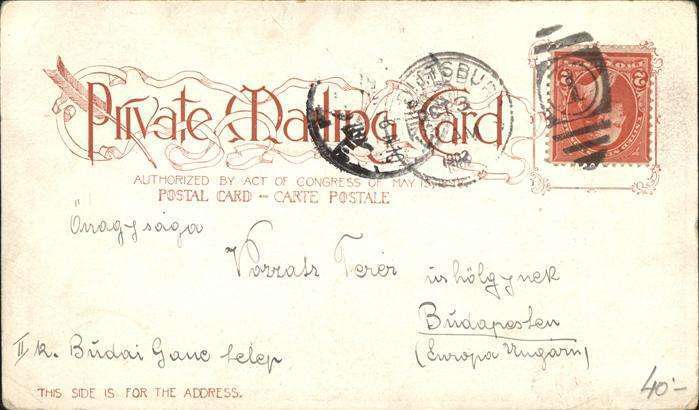 Private Mailing Card
PITTSBURG
OCT 3
1902
2
AUTHORIZED BY ACT OF CONGRESS OF MAY 19, 1898
POSTAL CARD – CARTE POSTALE
Önagysága
Teréz úrhölgynek
Budapesten
II k. Budai Ganz telep
(Európa Ungarn)
THIS SIDE IS FOR THE ADDRESS.
40.-